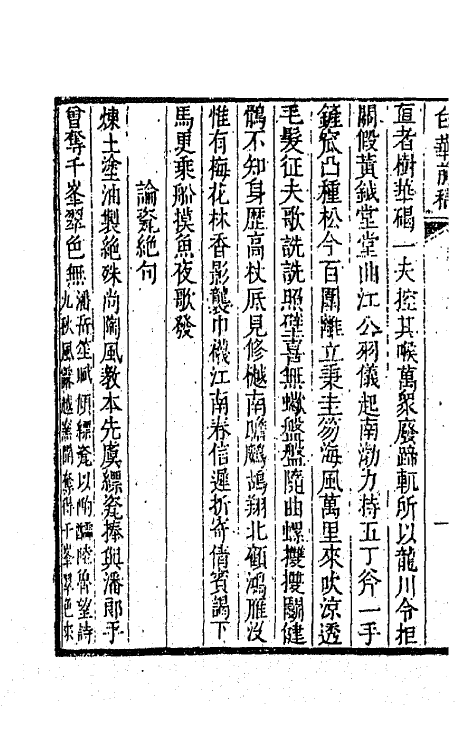 白華前稿
亙者樹華碣一夫控其喉萬衆廢蹄軏所以龍川令拒
關假黃鉞堂堂曲江公羽儀起南渤力持五丁斧一手
鏟窊凸種松今百圍離立秉圭笏海風萬里來吹涼透
毛髮征夫歌詵詵照碓喜無蠍盤盤隨曲螺躩躩關健
鶻不知身歷高杖底見修樾南瞻鷓鴣翔北顧鴻雁沒
惟有梅花林香影襲巾襪江南春信遲折寄倩賓謁下
馬更乘船摸魚夜歌發
論瓷絕句
煉土塗油製絕殊尚陶風教本先虞縹瓷捧與潘郎手
曾奪千峯翠色無潘岳笙賦傾縹瓷以酌醽陸魯望詩
九秋風露越窯開奪得千峯翠色來